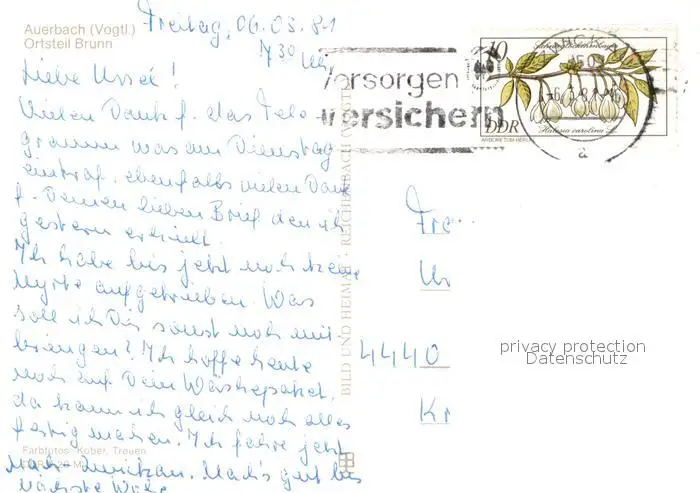 Auerbach (Vogtl.)
Ortsteil Brunn
Freitag, 06.03.81
7 30 Uhr
Liebe Ursel!
Vielen Dank f. das Tele-
gramm was am Dienstag
eintraf. ebenfalls vielen Dank
f. Deinen lieben Brief den ich
gestern erhielt.
Ich habe bis jetzt noch keine
Myrte aufgetrieben. Was
soll ich Dir sonst noch mit-
bringen? Ich hoffe heute
noch auf Dein Wäschepaket,
da kann ich gleich noch alles
fertig machen. Ich fahre jetzt
nach Zwickau. Mach's gut bis
nächste Woche
Farbfotos: Kober, Treuen
BILD UND HEIMAT REICHENBACH
Vorsorgen
versichern
10
DDR
Halesia carolina L.
ARBORETUM BERLIN
a
Fra
Ur
4440
Kr
privacy protection
Datenschutz